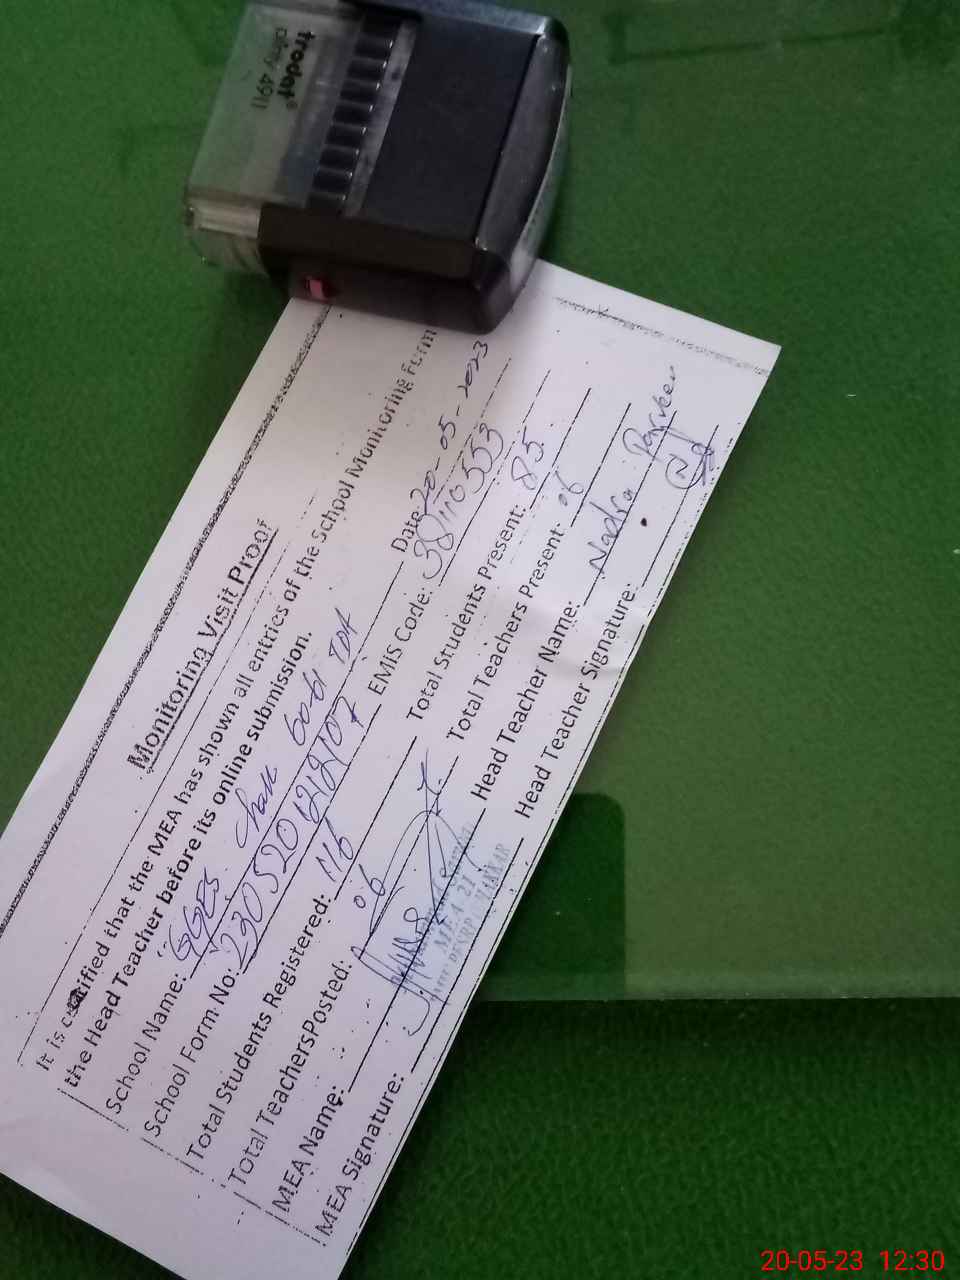 trodat®
printy 4911
Monitoring Visit Proof
It is certified that the MEA has shown all entries of the school Monitoring Form
the Head Teacher before its online submission.
School Name: GGES Chak 60-61 TDA Date: 20-05-2023
School Form No: EMIS Code: 38110553
Total Students Registered: 116 Total Students Present: 85
Total TeachersPosted: 06 Total Teachers Present: 06
MEA Name: Head Teacher Name: Nadra Parveen
MEA Signature: Head Teacher Signature:
MEA 21
20-05-23 12:30